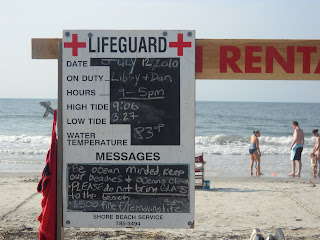 LIFEGUARD
RENT
DATE JULY 12, 2010
ON DUTY Libby + Dan
HOURS 9-5pm
HIGH TIDE 9:06
LOW TIDE 3:27
WATER TEMPERATURE 83°F
MESSAGES
Be ocean minded, keep
our beaches & oceans clean
PLEASE do not bring GLASS
to the beach
$500 fine removing life
SHORE BEACH SERVICE
785-3494